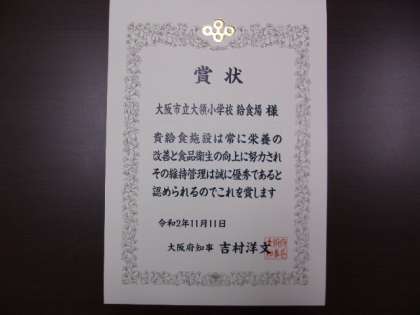 賞状
大阪市立大領小学校 給食場 様
貴給食施設は常に栄養の
改善と食品衛生の向上に努力され
その維持管理は誠に優秀であると
認められるのでこれを賞します
令和2年11月11日
大阪府知事 吉村洋文